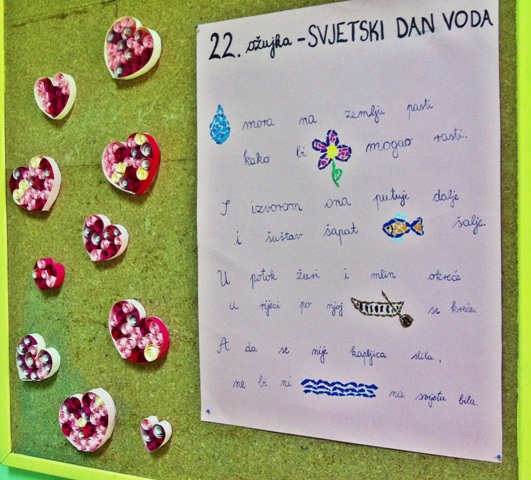 22. ožujka - SVJETSKI DAN VODA
mora na zemlju pasti
kako bi mogao rasti.
I izvorom ona putuje dalje
i šuštav šapat šalje.
U potok žuri i mlin okreće
u rijeci po njoj se kreće.
A da se nije kapljica slila,
ne bi ni na svijetu bila.